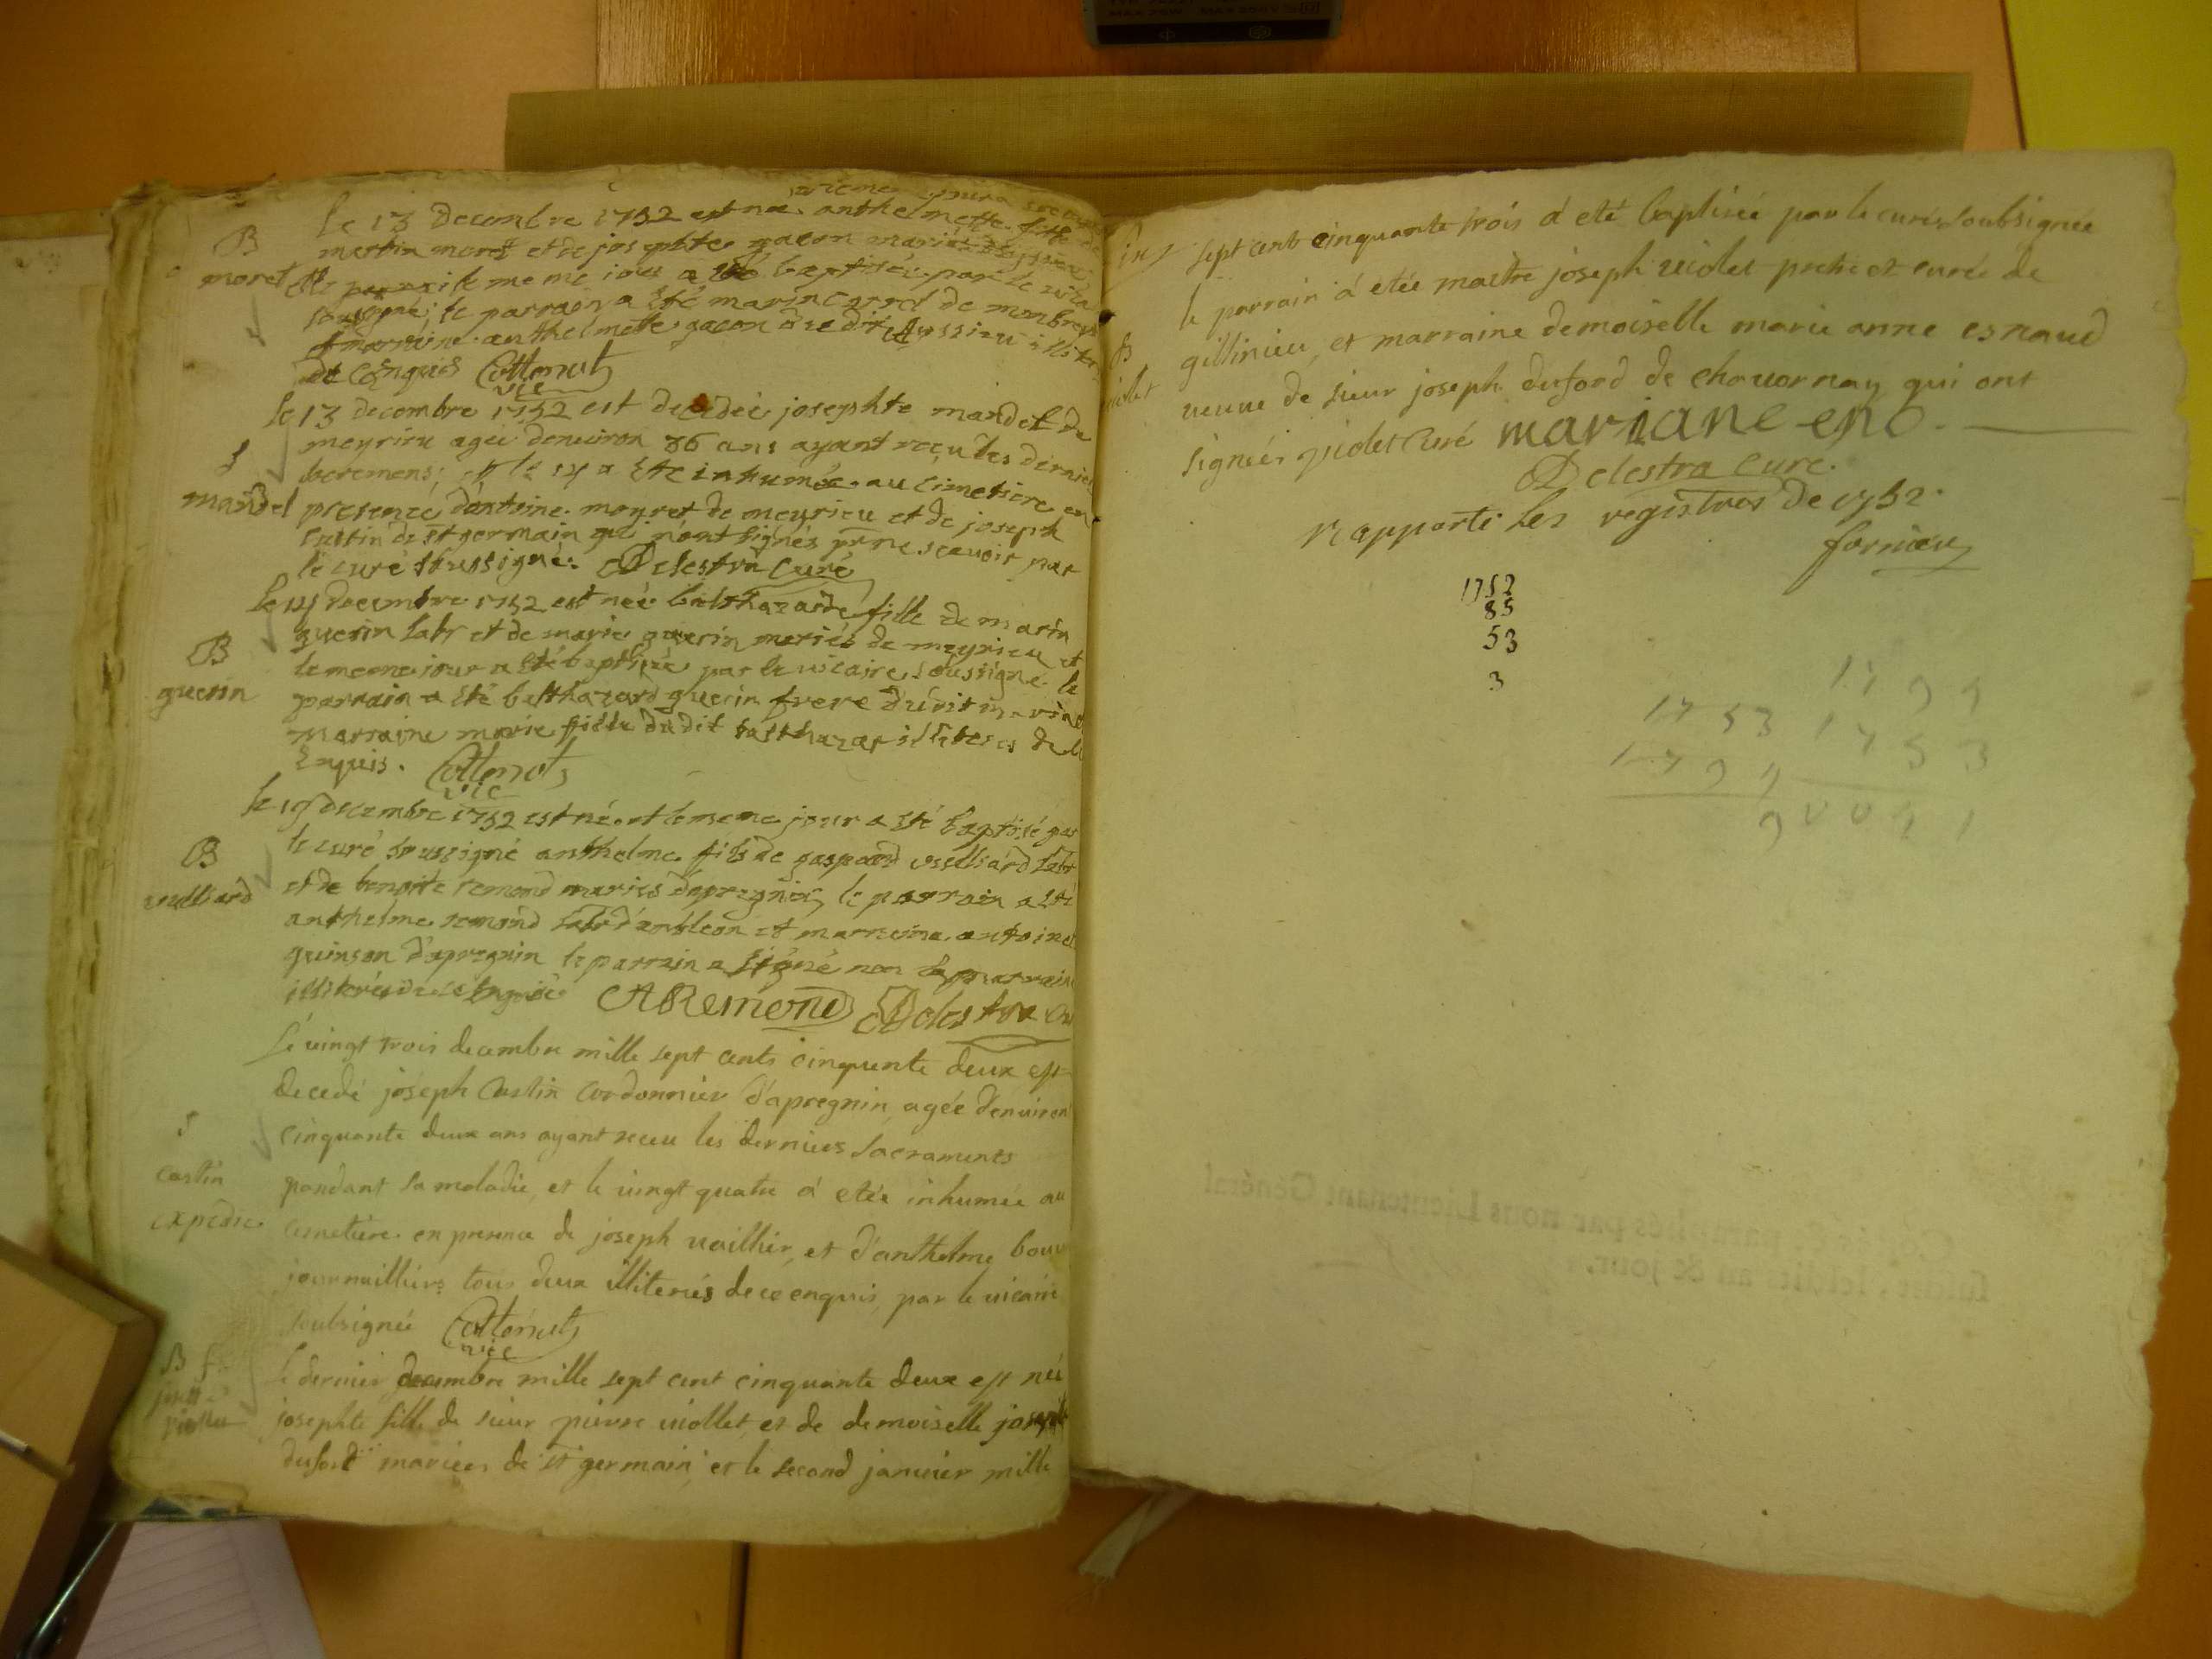 le 13 decembre 1752 est née anthelmette fille de
B
moret
martin moret et de josephte gacon mariés
le meme jour a été baptisée par le vicaire
soussigné; le parrain a été marin carrel de
et marraine anthelmette gacon
de Cenquis Cottonut
vic
le 13 decembre 1752 est decedée josephte mandel de
S
mandel
meyrieu agée denviron 86 ans ayant reçu les derniers
sacremens; et le 14 a été inhumée au cimetiere en
presence dantoine meyret de meyrieu et de joseph
castin de st germain qui n'ont signés pr ne scavoir par
le curé soussigné. Delestra Curé
le 14 decembre 1752 est née balthazarde fille de marin
B
guerin
guerin labr et de marie guerin mariés de meyrieu et
le meme jour a été baptisée par le vicaire soussigné le
parrain a été balthazard guerin frere dudit marin
marraine marie fille dudit balthazar illiteres de
Enquis. Cottonut
vic
le 19 decembre 1752 est né et le meme jour a été baptisé par
B
vuilliard
le curé soussigné anthelme fils de gaspard vuilliard labr
et de benoite remond mariés d'apregnin, le parrain a été
anthelme remond labr d'ambleon et marraine antoinet
guinson d'apregnin le parrain a signé non la marraine
illiterée de ce enquise ARemond Delestra Cu
le vingt trois decembre mille sept cents cinquente deux est
S
castin
expedie
decedé joseph Castin Cordonnier d'apregnin agée denviron
cinquante deux ans ayant receu les derniers sacraments
pandant sa maladie, et le vingt quatre a etée inhumée au
cemetiere en presence de joseph vaillier, et d'anthelme bouv
journailliers tous deux illiterés de ce enquis, par le vicaire
soubsignée Cottonut
vice
le dernier decembre mille sept cent cinquante deux est née
B f.
josephte fille de sieur pierre viollet, et de demoiselle joseph
dufort mariées de st germain, et le second janvier mille
sept cent cinquante trois a eté baptisée par le curé soubsignée
le parrain a etée maitre joseph violet pretre et curée de
gillinieu, et marraine demoiselle marie anne esnaud
veuve de sieur joseph duford de chavornay qui ont
signées violet curé mariane eno
Delestra curé.
rapporté les registres de 1752.
fornieu
1752
85
53
3
1753
1753
Cottés & paraphés par nous Lieutenant Général
susdit, lesdits an & jour.